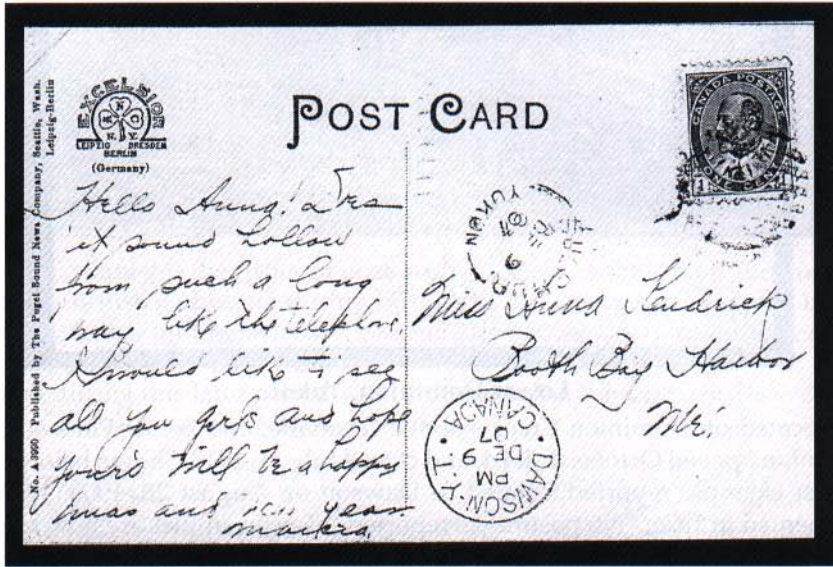 No. A 3990 Published by The Puget Sound News Company, Seattle, Wash.
Leipzig-Berlin
EXCELSIOR
N
M O
N.Y.
LEIPZIG DRESDEN
BERLIN
(Germany)
POST CARD
CANADA POSTAGE
ONE CENT
1
Hello Anna! Does
it sound hollow
from such a long
way like the telephone.
I would like to see
all you girls and hope
yours will be a happy
xmas and new year.
YUKON
9
07
Miss Anna Kendrick
Booth Bay Harbor
Me.
DAWSON Y.T.
PM
9
DE
07
CANADA